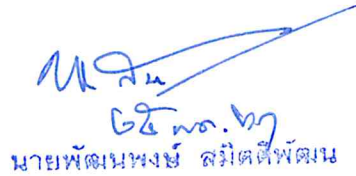 ๒๕ พ.ค. ๖๗
นายพัฒนพงษ์ สมิตติพัฒน